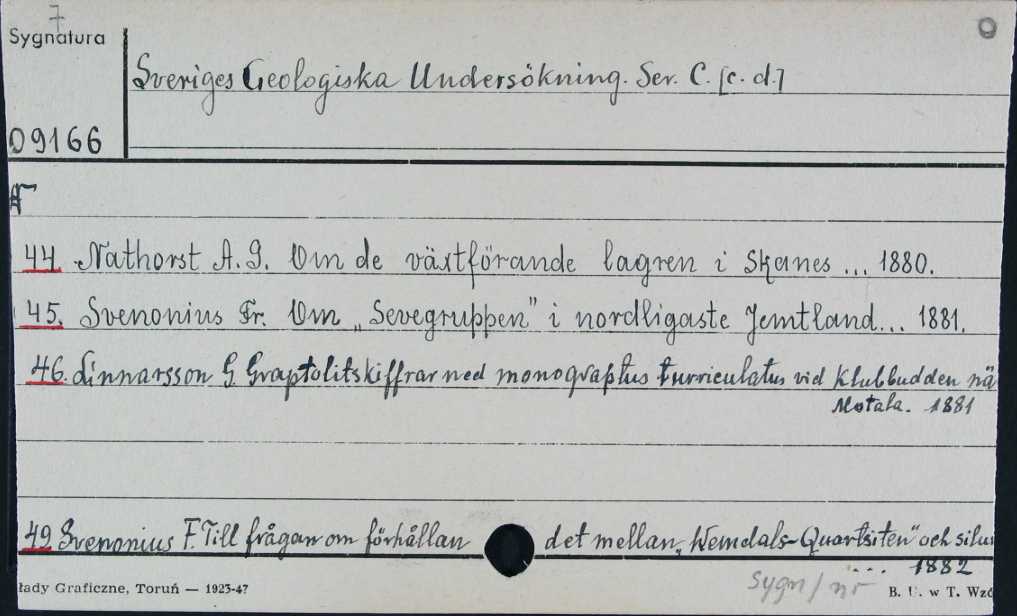 7
Sygnatura
Sveriges Geologiska Undersökning. Ser. C. [c. d.]
09166
44. Nathorst A. G. Om de växtförande lagren i Skanes ... 1880.
45. Svenonius Fr. Om „Sevegruppen" i nordligaste Jemtland... 1881.
46. Linnarsson G Graptolitskiffrar ned monograptus turriculatus vid Klubbudden nä
Motala. 1881
49 Svenonius F. Till frågan om förhållan det mellan „Wemdals-Quartsiten" och silu
... 1882
łady Graficzne, Toruń — 1923-47
sygn/nr
B. U. w T. Wzó